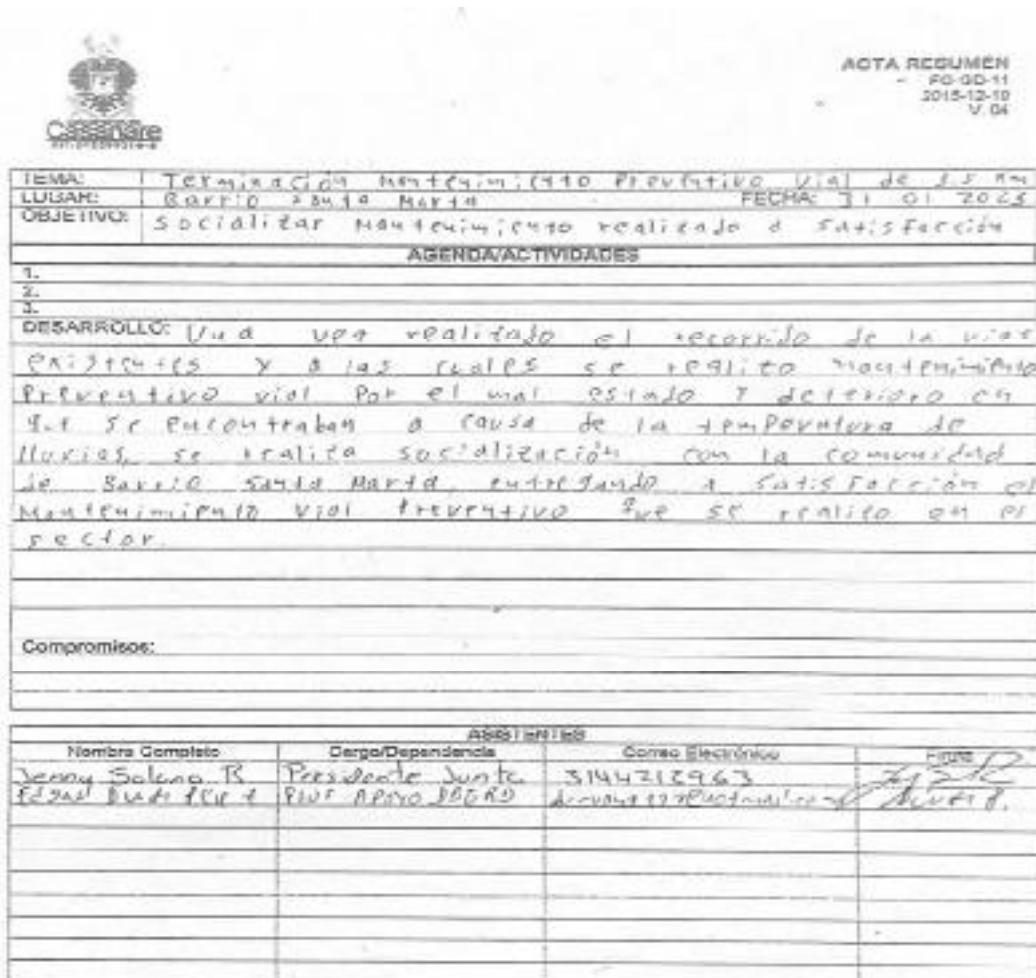 ACTA RESUMEN
FO-GD-11
2015-12-10
V. 04
Casanare
TEMA: Terminación Mantenimiento Preventivo Vial de 1.5 Km
LUGAR: Barrio Santa Marta FECHA: 31 01 2023
OBJETIVO: Socializar Mantenimiento realizado a Satisfacción
AGENDA/ACTIVIDADES
1.
2.
3.
DESARROLLO: Una vez realizado el recorrido de la vias
existentes y a las cuales se realizo mantenimiento
Preventivo vial Por el mal estado y deterioro en
que se encontraban a causa de la temperatura de
lluvias, se realiza socialización con la comunidad
de Barrio Santa Marta, entregando a Satisfacción el
Mantenimiento Vial Preventivo que se realizo en el
sector.
Compromisos:
ASISTENTES
Nombre Completo Cargo/Dependencia Correo Electrónico Firma
Jenny Solano R Presidente Junta 3144212963
Edgar Apoyo